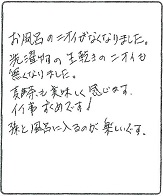 お風呂のニオイがなくなりました。
洗濯物の生乾きのニオイも
無くなりました。
も美味しく感じます。
イイ事ずくめです!
孫と風呂に入るのが楽しいです。